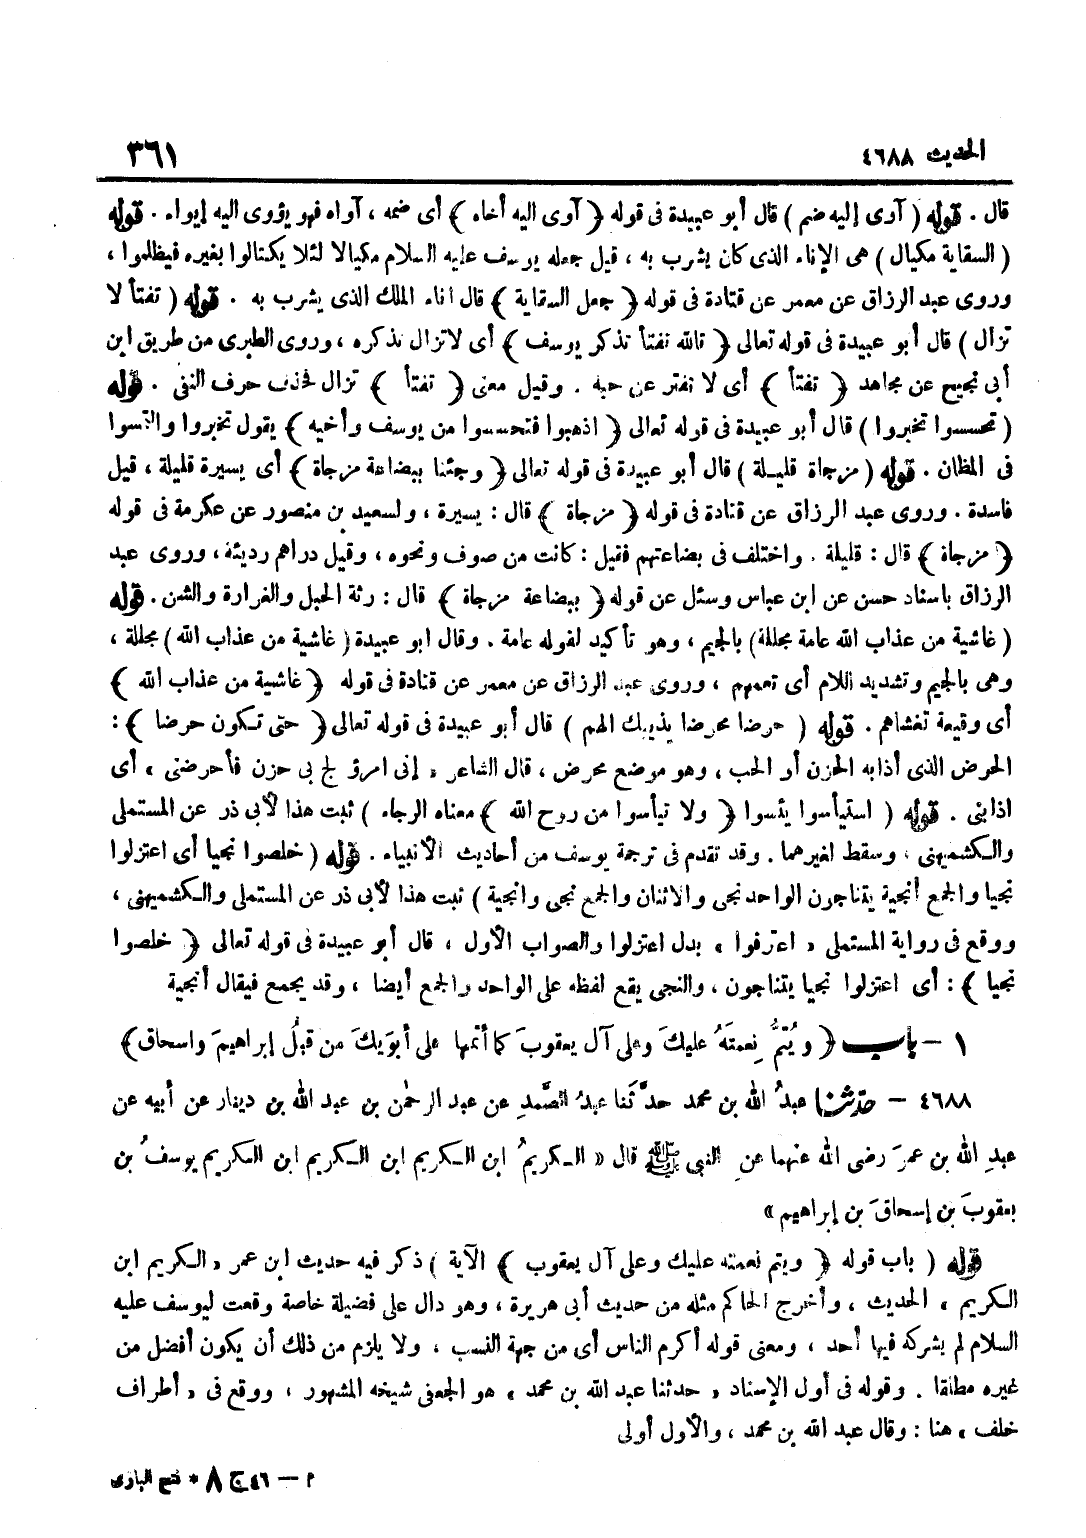 الحديث ٤٦٨٨
٣٦١
قال . قوله ( آوى إليه ضم ) قال أبو عبيدة فى قوله ﴿ آوى اليه أخاه ﴾ أى ضمه ، آواه فهو يؤوى اليه إيواء . قوله
( السقاية مكيال ) هى الإناء الذى كان يشرب به ، قيل جعله يوسف عليه السلام مكيالا لئلا يكتالوا بغيره فيظلموا ،
وروى عبد الرزاق عن معمر عن قتادة فى قوله ﴿ جعل السقاية ﴾ قال اناء الملك الذى يشرب به . قوله ( تفتأ لا
تزال ) قال أبو عبيدة فى قوله تعالى ﴿ تالله تفتأ تذكر يوسف ﴾ أى لا تزال تذكره ، وروى الطبرى من طريق ابن
أبى نجيح عن مجاهد ﴿ تفتأ ﴾ أى لا تفتر عن حبه . وقيل معنى ﴿ تفتأ ﴾ تزال فحذف حرف النفى . قوله
( تحسسوا تخبروا ) قال أبو عبيدة فى قوله تعالى ﴿ اذهبوا فتحسسوا من يوسف وأخيه ﴾ يقول تخبروا والتمسوا
فى المظان . قوله ( مزجاة قليلة ) قال أبو عبيدة فى قوله تعالى ﴿ وجئنا ببضاعة مزجاة ﴾ أى يسيرة قليلة ، قيل
فاسدة . وروى عبد الرزاق عن قتادة فى قوله ﴿ مزجاة ﴾ قال : يسيرة ، ولسعيد بن منصور عن عكرمة فى قوله
﴿ مزجاة ﴾ قال : قليلة . واختلف فى بضاعتهم فقيل : كانت من صوف ونحوه ، وقيل دراهم رديئة ، وروى عبد
الرزاق باسناد حسن عن ابن عباس وسئل عن قوله ﴿ ببضاعة مزجاة ﴾ قال : رثة الحبل والغرارة والشن . قوله
( غاشية من عذاب الله عامة مجللة ) بالجيم ، وهو تأكيد لقوله عامة . وقال ابو عبيدة ( غاشية من عذاب الله ) مجللة ،
وهى بالجيم وتشديد اللام أى تعمهم ، وروى عبد الرزاق عن معمر عن قتادة فى قوله ﴿ غاشية من عذاب الله ﴾
أى وقيعة تغشاهم . قوله ( حرضا محرضا يذيبك الهم ) قال أبو عبيدة فى قوله تعالى ﴿ حتى تكون حرضا ﴾ :
الحرض الذى أذابه الحزن أو الحب ، وهو موضع محرض ، قال الشاعر « إنى امرؤ لج بى حزن فأحرضنى » أى
اذابنى . قوله ( استيأسوا يئسوا ﴿ ولا تيأسوا من روح الله ﴾ معناه الرجاء ) ثبت هذا لأبى ذر عن المستملى
والكشميهنى ، وسقط لغيرهما . وقد تقدم فى ترجمة يوسف من أحاديث الأنبياء . قوله ( خلصوا نجيا أى اعتزلوا
نجيا والجمع أنجية يتناجون الواحد نجى والاثنان والجمع نجى وانجية ) ثبت هذا لأبى ذر عن المستملى والكشميهنى ،
ووقع فى رواية المستملى « اعترفوا » بدل اعتزلوا والصواب الأول ، قال أبو عبيدة فى قوله تعالى ﴿ خلصوا
نجيا ﴾ : أى اعتزلوا نجيا يتناجون ، والنجى يقع لفظه على الواحد والجمع أيضا ، وقد يجمع فيقال أنجية
١ - باب ﴿ ويُتمُّ نِعمتَهُ عليكَ وعلى آل يعقوبَ كما أتمها على أبوَيكَ من قبلُ إبراهيمَ واسحاق ﴾
٤٦٨٨ - حدثنا عبدُ الله بن محمد حدَّثَنا عبدُ الصَّمدِ عن عبد الرحمٰن بن عبد الله بن دينار عن أبيه عن
عبدِ الله بن عمرَ رضى الله عنهما عنِ النبى ﷺ قال « الكريمُ ابن الكريم ابن الكريم ابن الكريم يوسفُ بن
يعقوبَ بن إسحاقَ بن إبراهيم »
قوله ( باب قوله ﴿ ويتم نعمته عليك وعلى آل يعقوب ﴾ الآية ) ذكر فيه حديث ابن عمر « الكريم ابن
الكريم » الحديث ، وأخرج الحاكم مثله من حديث أبى هريرة ، وهو دال على فضيلة خاصة وقعت ليوسف عليه
السلام لم يشركه فيها أحد ، ومعنى قوله أكرم الناس أى من جهة النسب ، ولا يلزم من ذلك أن يكون أفضل من
غيره مطلقا . وقوله فى أول الإسناد « حدثنا عبد الله بن محمد » هو الجعفى شيخه المشهور ، ووقع فى « أطراف
خلف » هنا : وقال عبد الله بن محمد ، والأول أولى
م — ٤٦ ج ٨ * فتح البارى